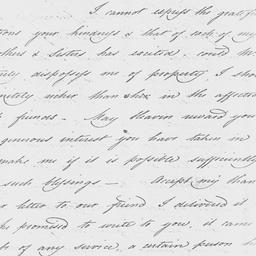 I cannot express the gratif
tions your kindness & that of each of my
others & Sisters has excited, could the
disposess me of property I shou
nitely richer than she in the affectio
funds - May Heaven reward you
generous interest you have taken in
make me if it is possible sufficiently
such blessings - Accept my than
letter to our friend I delivered it
he promised to write to you, it came
of any service, a certain person